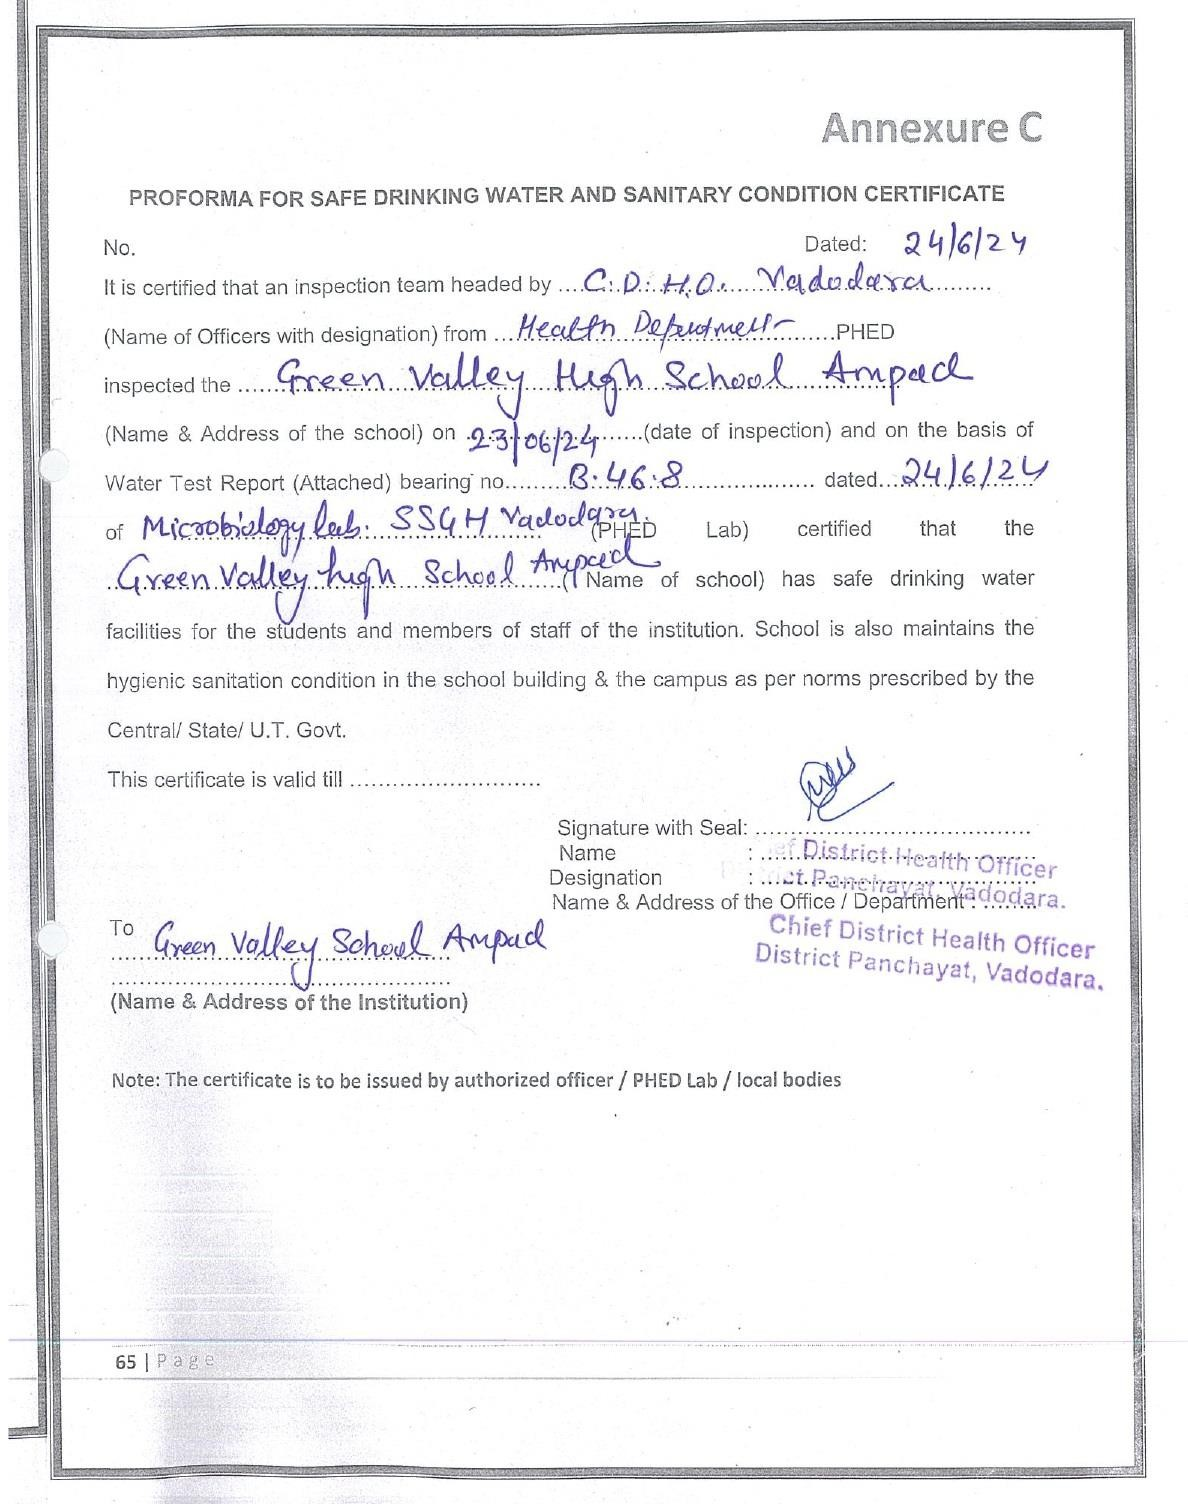 Annexure C
PROFORMA FOR SAFE DRINKING WATER AND SANITARY CONDITION CERTIFICATE
No. Dated: 24/6/24
It is certified that an inspection team headed by ... C.D.H.O. Vadodara ..........
(Name of Officers with designation) from ... Health Department ............PHED
inspected the ..... Green Valley High School Ampad
(Name & Address of the school) on .23/06/24......(date of inspection) and on the basis of
Water Test Report (Attached) bearing no........ B.46.8 ...................... dated...24/6/24
of Microbiology lab. SSGH Vadodara. (PHED Lab) certified that the
Green Valley high School Ampad (Name of school) has safe drinking water
facilities for the students and members of staff of the institution. School is also maintains the
hygienic sanitation condition in the school building & the campus as per norms prescribed by the
Central/ State/ U.T. Govt.
This certificate is valid till ................................
Signature with Seal: ..............................................
Name : ...... District Health Officer
Designation : ... Panchayat, Vadodara.
Name & Address of the Office / Department : .........
Chief District Health Officer
District Panchayat, Vadodara.
To Green Valley School Ampad
(Name & Address of the Institution)
Note: The certificate is to be issued by authorized officer / PHED Lab / local bodies
65 | Page